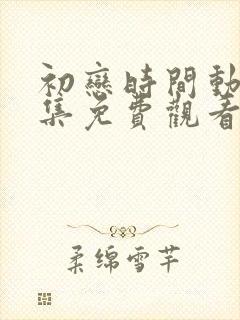 初戀時間動
集免費觀看
柔绵雪芊